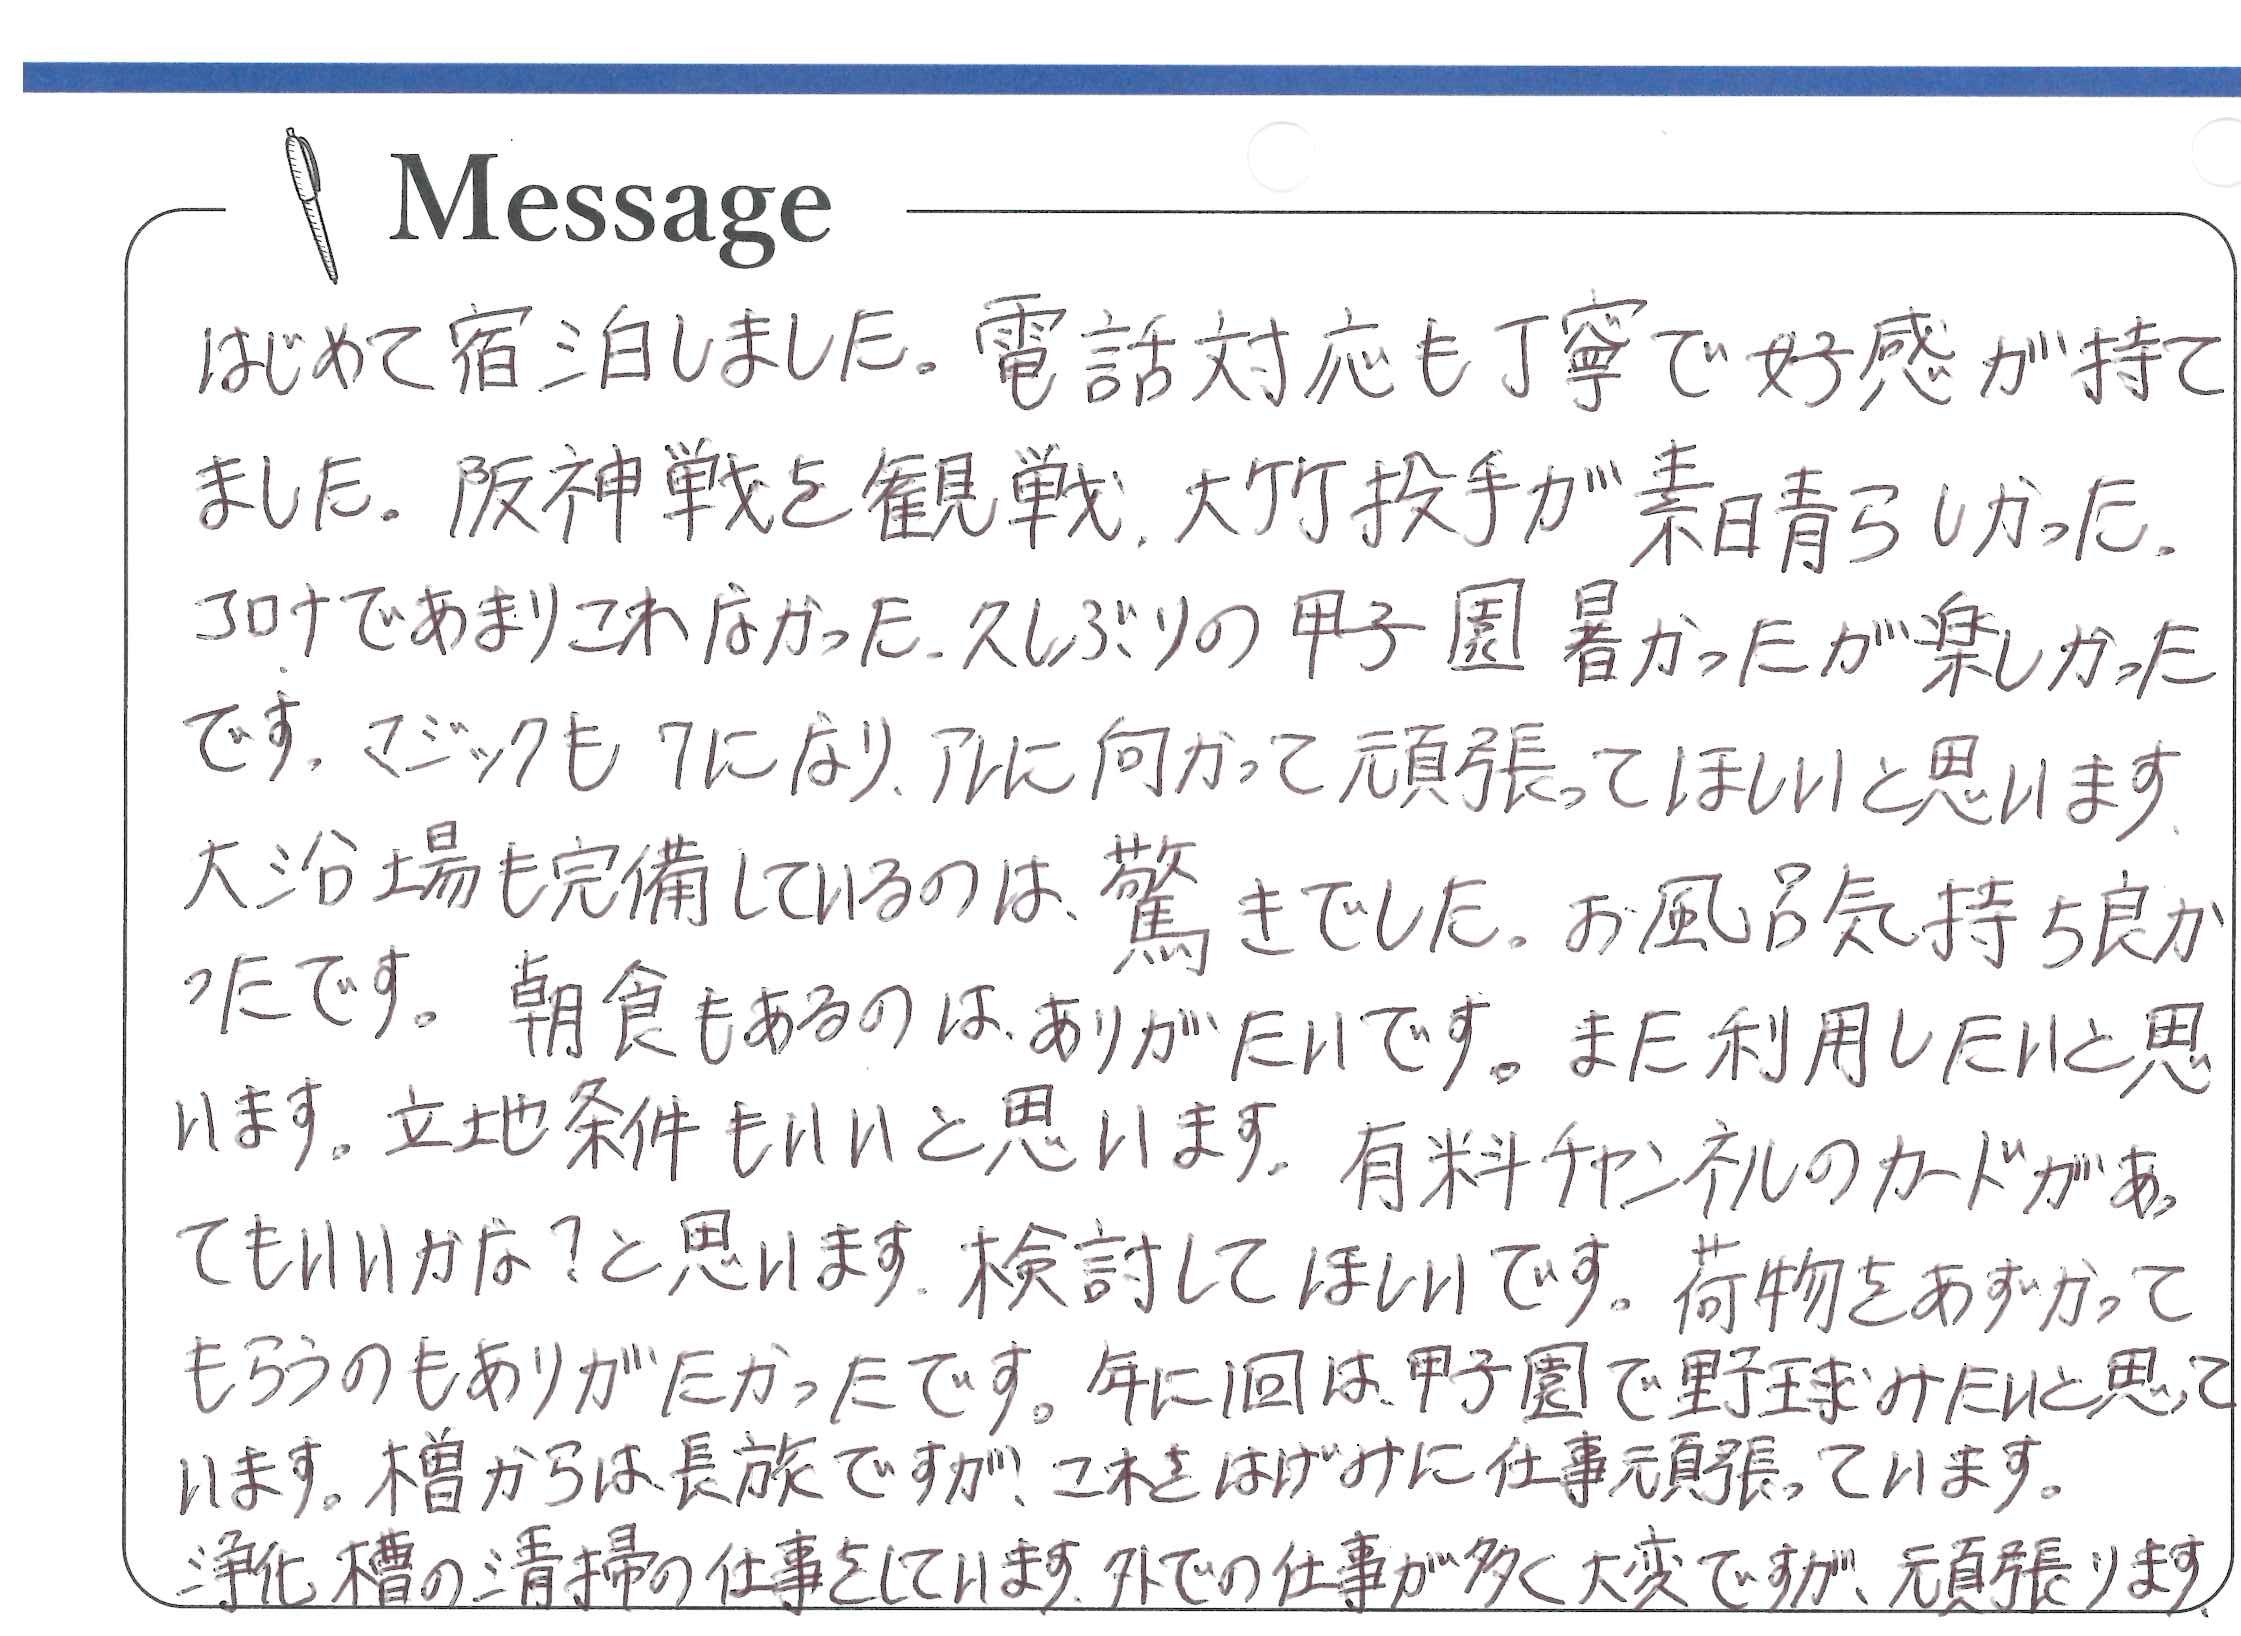 Message
はじめて宿泊しました。電話対応も丁寧で好感が持て
ました。阪神戦を観戦、大竹投手が素晴らしかった。
コロナであまりこれなかった。久しぶりの甲子園暑かったが楽しかった
です。マジックも7になり、アレに向かって頑張ってほしいと思います。
大浴場も完備しているのは、驚きでした。お風呂気持ち良か
ったです。朝食もあるのは、ありがたいです。また利用したいと思
います。立地条件もいいと思います。有料チャンネルのカードがあっ
てもいいかな?と思います。検討してほしいです。荷物をあずかって
もらうのもありがたかったです。年に1回は、甲子園で野球みたいと思って
います。橧からは、長旅ですが、これをはげみに仕事頑張っています。
浄化槽の清掃の仕事をしています。外での仕事が多く大変ですが、頑張ります。